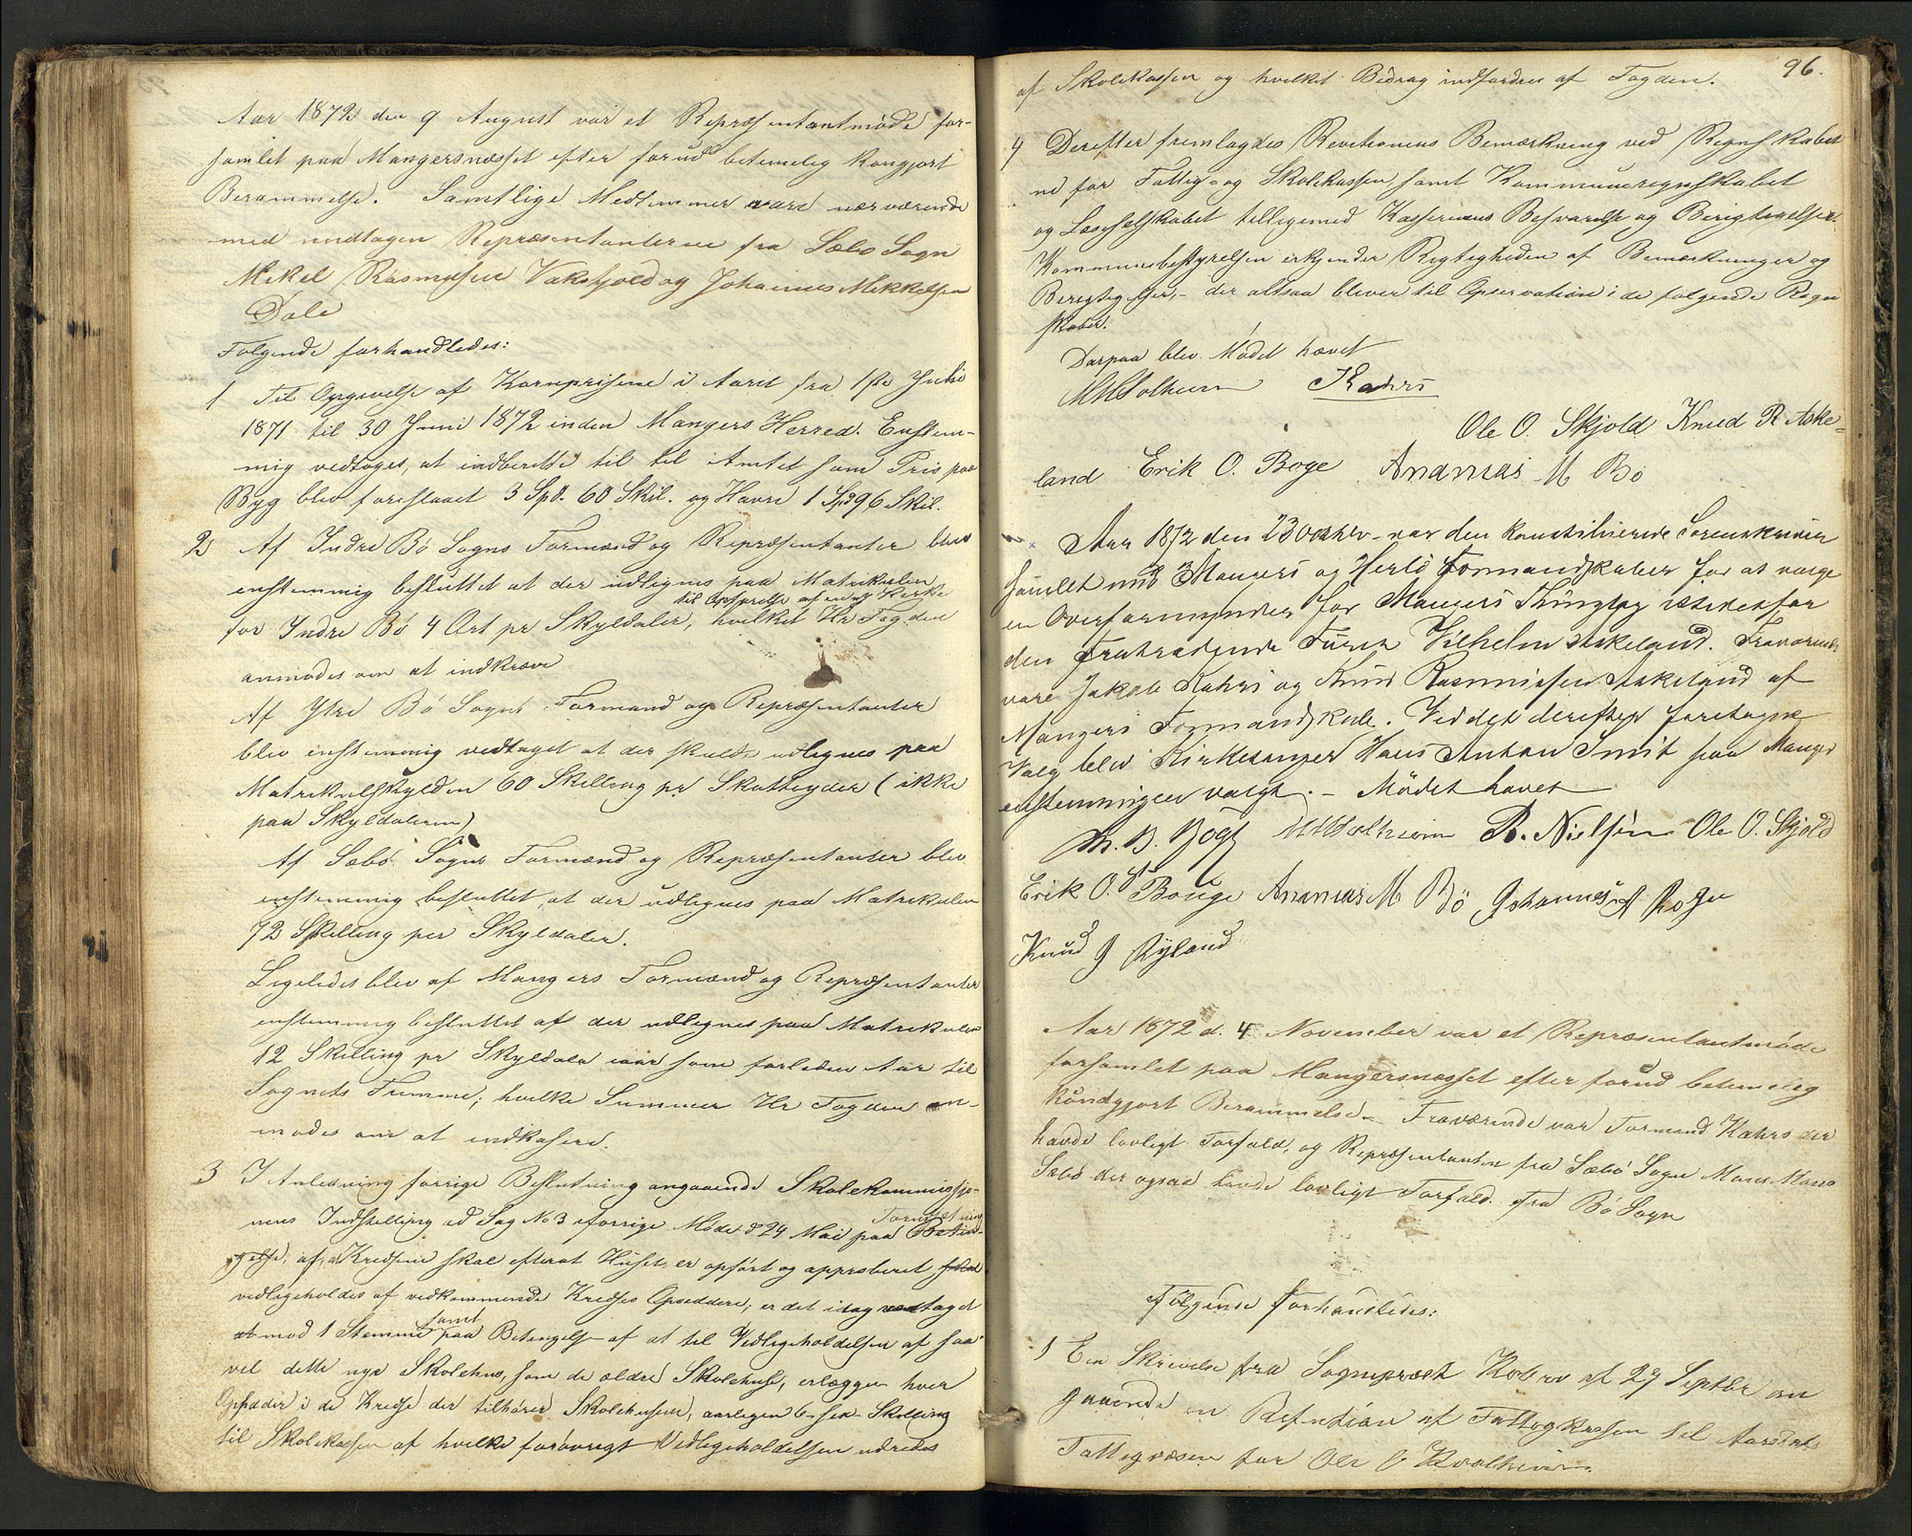 Aar 1872 den 9 August var et Repræsentantmøde for-
samlet paa Mangersnæsset efter forud betimelig kongjort
Berammelse. Samtlige Medlemmer vare nærværende
med undtagen Repræsentanterne fra Sæbø Sogn
Mikel Rasmussen Vakshjold og Johannes Mikkelsen
Dale
Følgende forhandledes:
1 Til Opgivelse af Kornpriserne i Aaret fra 1ste Juli
1871 til 30 Juni 1872 inden Mangers Herred. Enstem-
mig vedtoges, at indberette til Amtet som Pris paa
Byg blev foreslaaet 3 Spd. 60 Skil. og Havre 1 Spd 96 Skil.
2 Af Indre Bø Sogns Formænd og Repræsentanter blev
enstemmig besluttet at der udlignes paa Matrikulen
til Opførelse af en ny Kirke
for Indre Bø 4 Ort pr Skyldaler, hvilket Hr Fogden
anmodes om at indkræve
Af Ytre Bø Sogns Formænd og Repræsentanter
blev enstemmig vedtaget at der skulde udlignes paa
Matrikulskylden 60 Skilling pr Skatteyder (ikke
paa Skyldaleren)
Af Sæbø Sogns Formænd og Repræsentanter blev
enstemmig besluttet, at der udlignes paa Matrikulen
72 Skilling per Skyldaler.
Ligeledes blev af Mangers Formænd og Repræsentanter
enstemmig besluttet at der udlignes paa Matrikulen
12 Skilling pr Skyldaler iaar som forleden Aar til
Sognets Fromme; hvilke Summer Hr Fogden an-
modes om at indkasere.
3 I Anledning forrige Beslutning angaaende Skolekommissjo-
nens Indstilling ad Sag No 3 i forrige Møde d 24 Mai paa Betin-
gelse, at Kredsene skal efterat Huset er opført og approberet
vedligeholdes af vedkommende Kredses Opsiddere; er det idag vedtaget
mod 1 Stemme samt paa Betingelse af at til Vedligeholdelsen af saa
vel dette nye Skolehus, som de ældre Skolehuse, erlægger hver
Opsidder i de Kredse der tilhører Skolehusene, aarligen 6 - sex - Skilling
til Skolekassen af hvilke forøvrigt Vedligeholdelsen udredes
96.
af Skolekassen og hvilket Bidrag indfordres af Fogden.
4 Derefter fremlagdes Revisionens Bemærkning ved Regnskaber
ne for Fattig- og Skolekassen samt Kommuneregnskabet
og Læseselskabet tilligemed Kassererens Besvarelse og Berigtigelser.
Kommunebestyrelsen erkjender Rigtigheden af Bemærkninger og
Berigtigelser, - der altsaa bliver til Opservation i de følgende Regn
skaber.
Derpaa blev Mødet hævet
Kahrs
Ole O. Skjold Knud R Aske-
land Erik O. Boge Ananias M Bø
Aar 1872 den 23 Oktbr. var den konstituerede Sorenskriver
samlet med Mangers og Herlø Formandskaber for at vælge
en Overformynder for Mangers Thinglag istedetfor
den fratrædende Vilhelm Askeland. Fraværende
vare Jakob Kahrs og Knud Rasmussen Askeland af
Mangers Formandskab. Ved det derefter foretagne
Valg blev Kirkesanger Hans Anton Smit paa Manger
enstemmigen valgt. - Mødet hævet
R. Nielsen Ole O. Skjold
Erik O. Bouge Ananias M Bø Johannes
Knud J Ryland
Aar 1872 d. 4 November var et Repræsentantmøde
forsamlet paa Mangersnæsset efter forud betimelig
kundgjort Berammelse - Fraværende var Formand Kahrs der
havde lovligt Forfald, og Repræsentanten fra Sæbø Sogn Mons Monsen
Sæbø der ogsaa havde lovligt Forfald. fra Bø Sogn
Følgende forhandledes:
1 En Skrivelse fra Sogneprest af 27 Septbr an
gaaende en Refusion af Fattigkassen til
Fattigvæsen for Ole O Kvalheim.